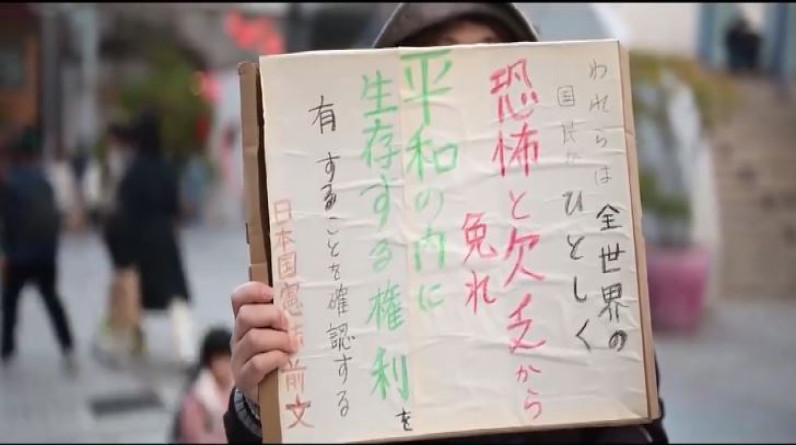 われらは全世界の
国民がひとしく
恐怖と欠乏から
免れ
平和の内に
生存する権利を
有することを確認する
日本国憲法前文